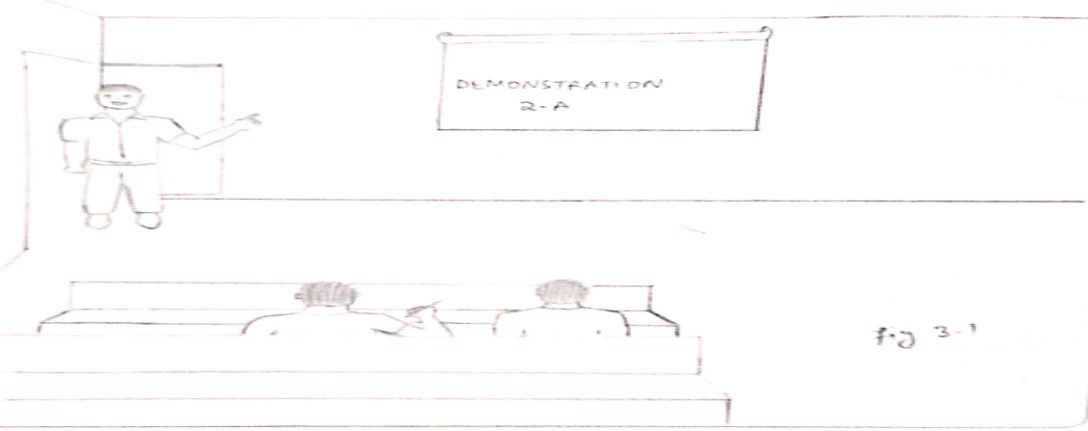 DEMONSTRATION
2-A
fig 3-1